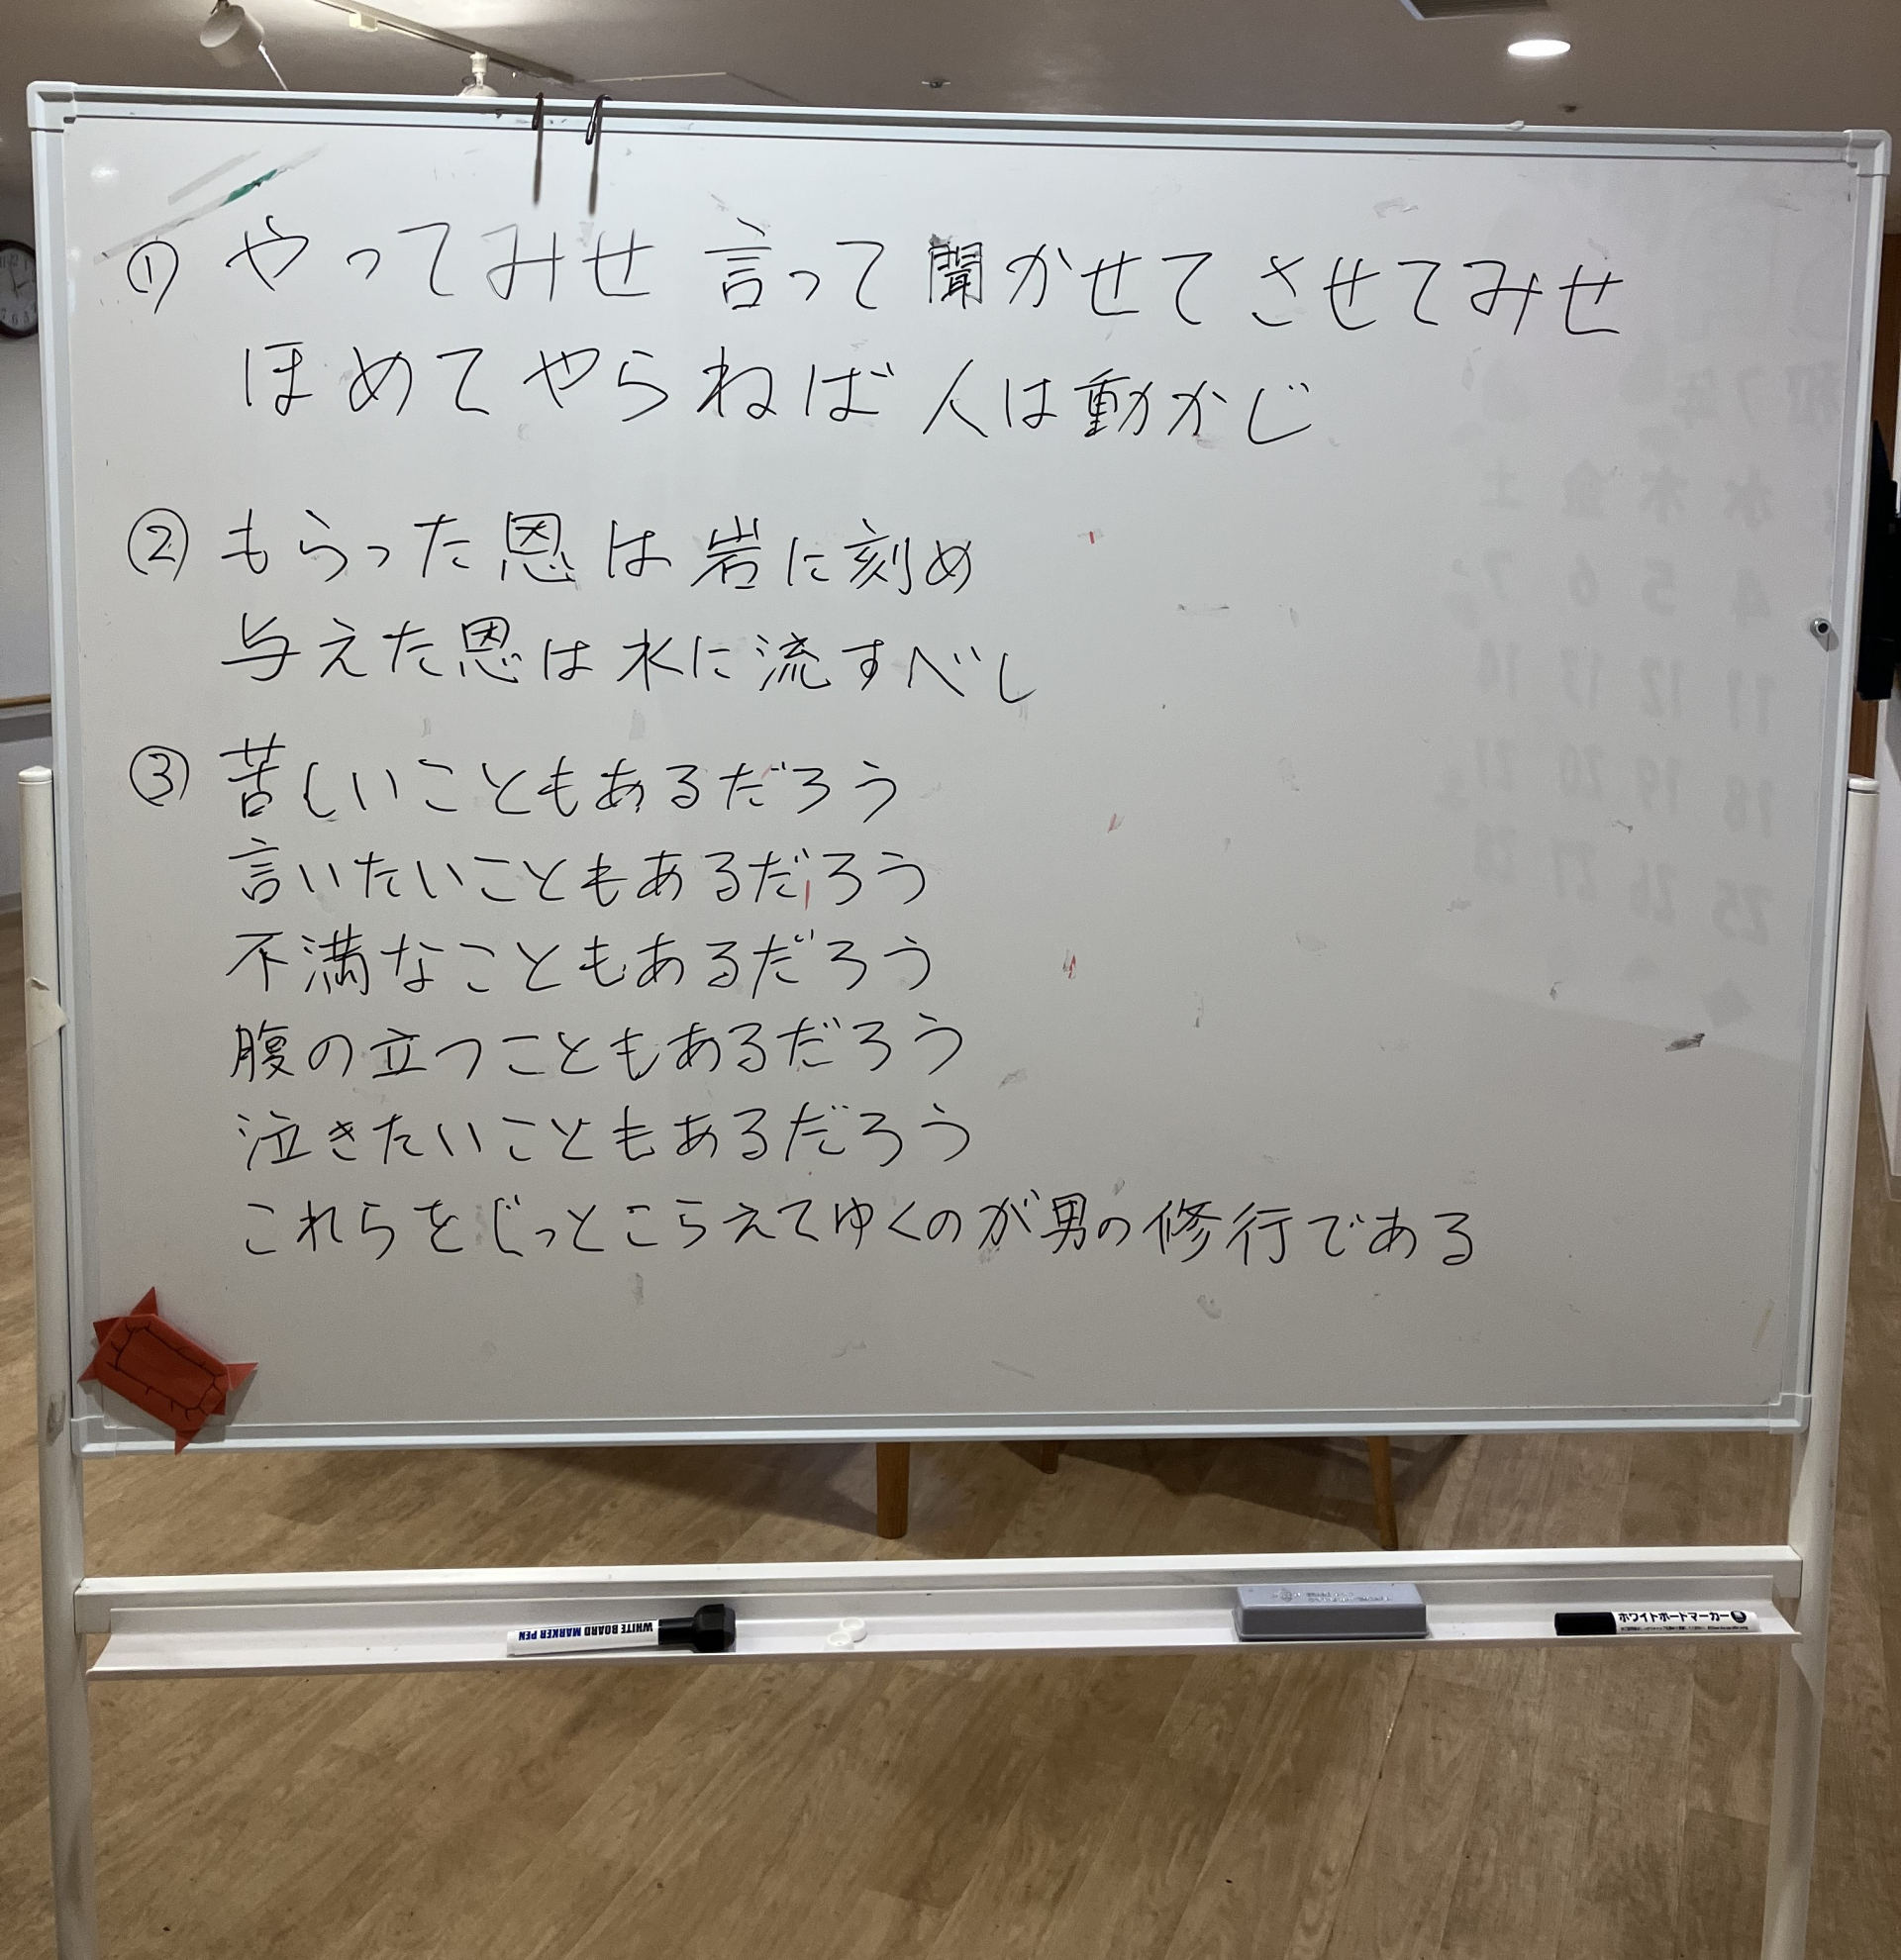 ① やってみせ 言って聞かせて させてみせ
ほめてやらねば 人は動かじ
② もらった恩は岩に刻め
与えた恩は水に流すべし
③ 苦しいこともあるだろう
言いたいこともあるだろう
不満なこともあるだろう
腹の立つこともあるだろう
泣きたいこともあるだろう
これらをじっとこらえてゆくのが男の修行である
WHITE BOARD MARKER PEN
ホワイトボードマーカー